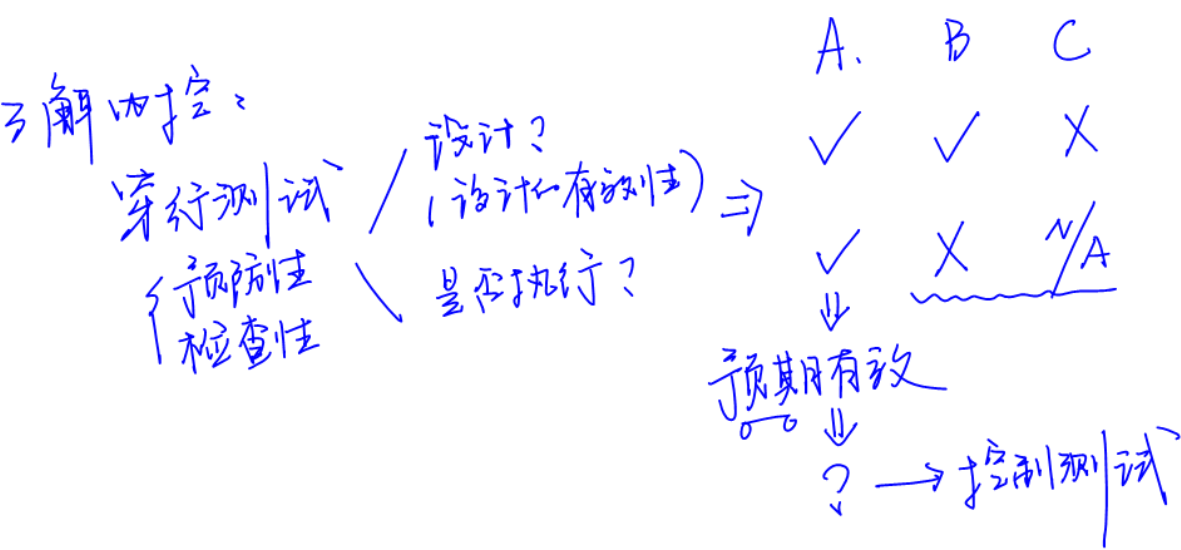 了解内控:
穿行测试
预防性
检查性
设计?
(设计的有效性)⇒
是否执行?
A. B C
✓ ✓ X
✓ X N/A
⇓
预期有效
⇓
? → 控制测试